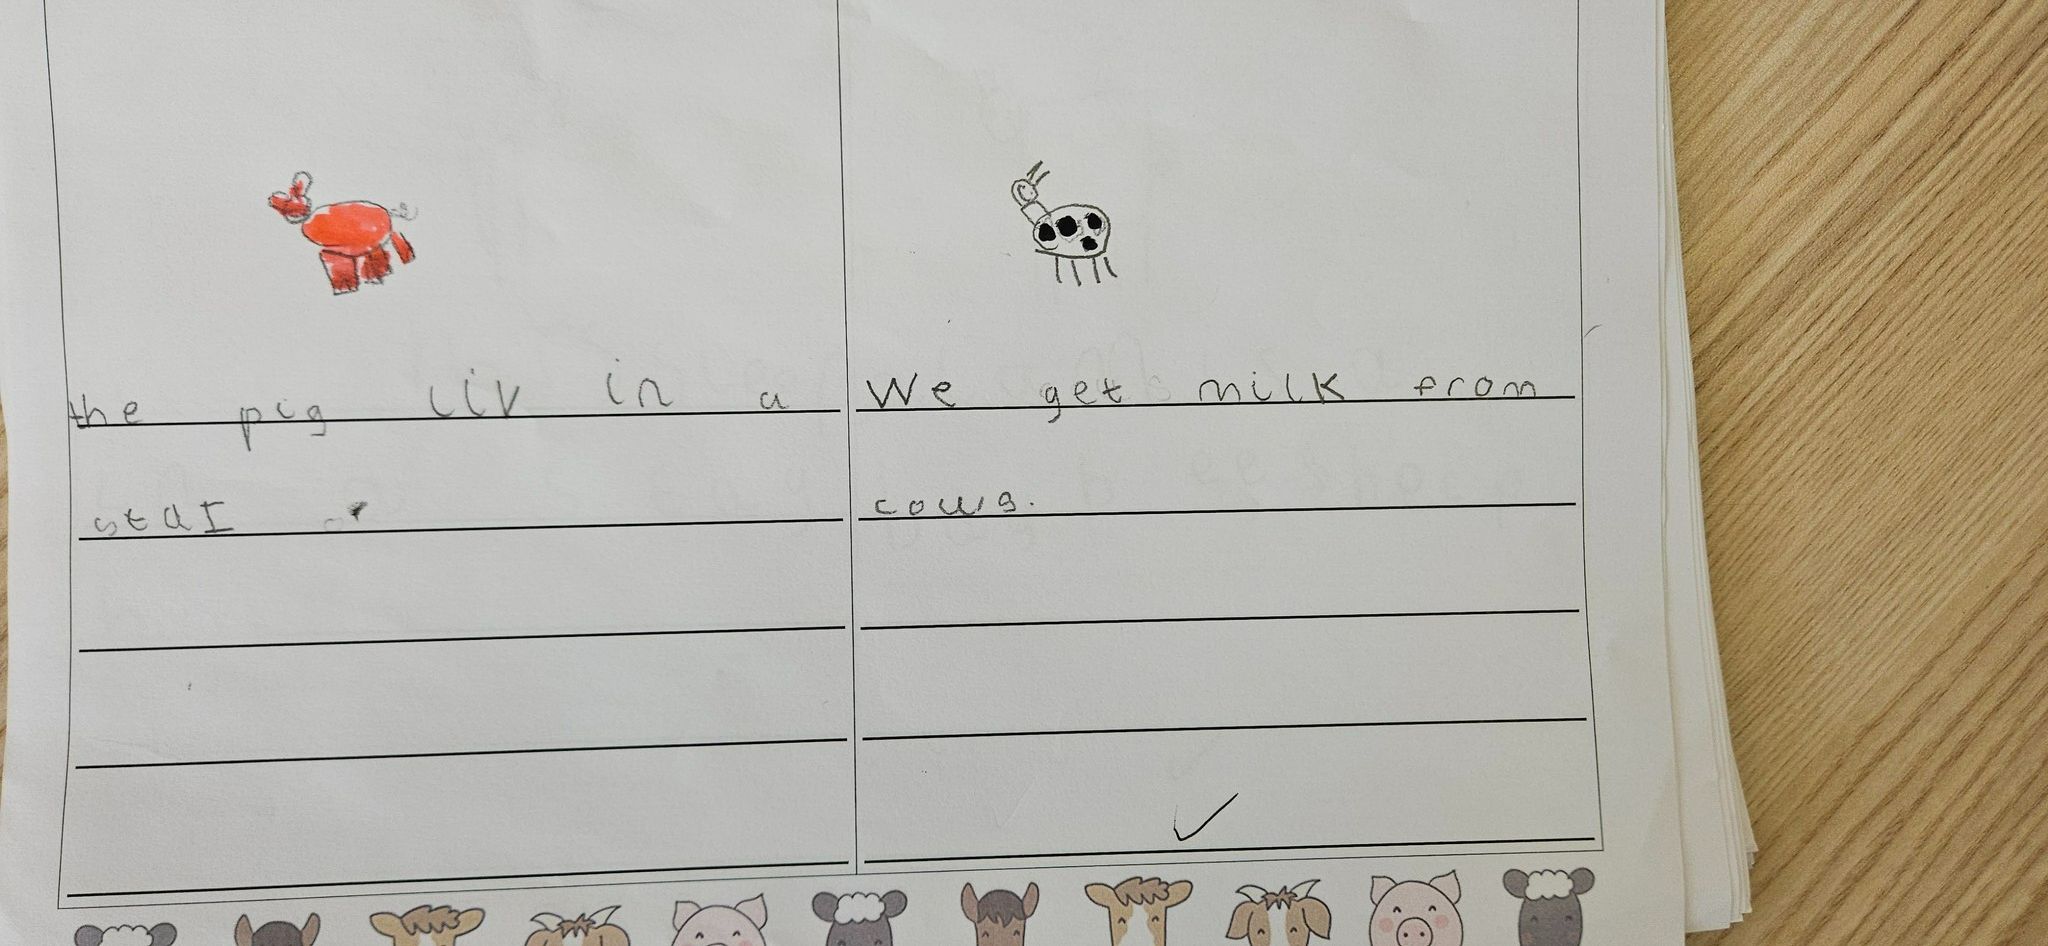 the pig liv in a
stal .
We get milk from
cows.